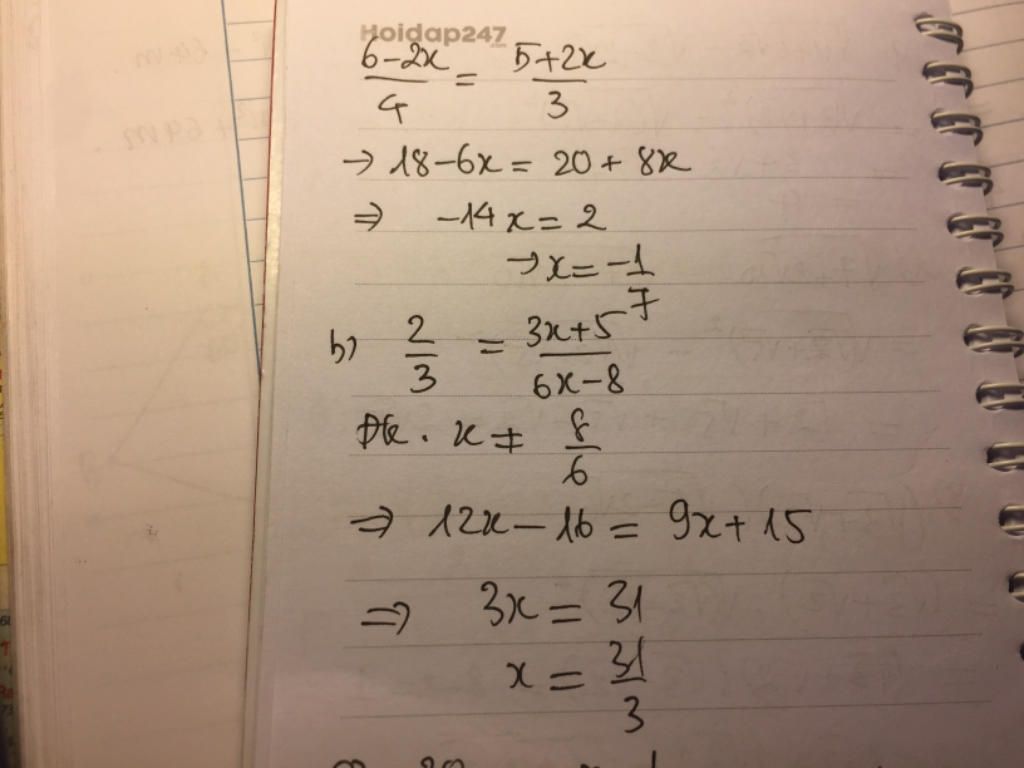 Hoidap247.com
6-2x/4 = 5+2x/3
→ 18-6x = 20 + 8x
⇒ -14x = 2
→ x = -1/7
b) 2/3 = 3x+5/6x-8
ĐK. x ≠ 8/6
⇒ 12x - 16 = 9x + 15
⇒ 3x = 31
x = 31/3